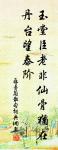 玉堂臣老非仙骨猶在
丹台望泰階